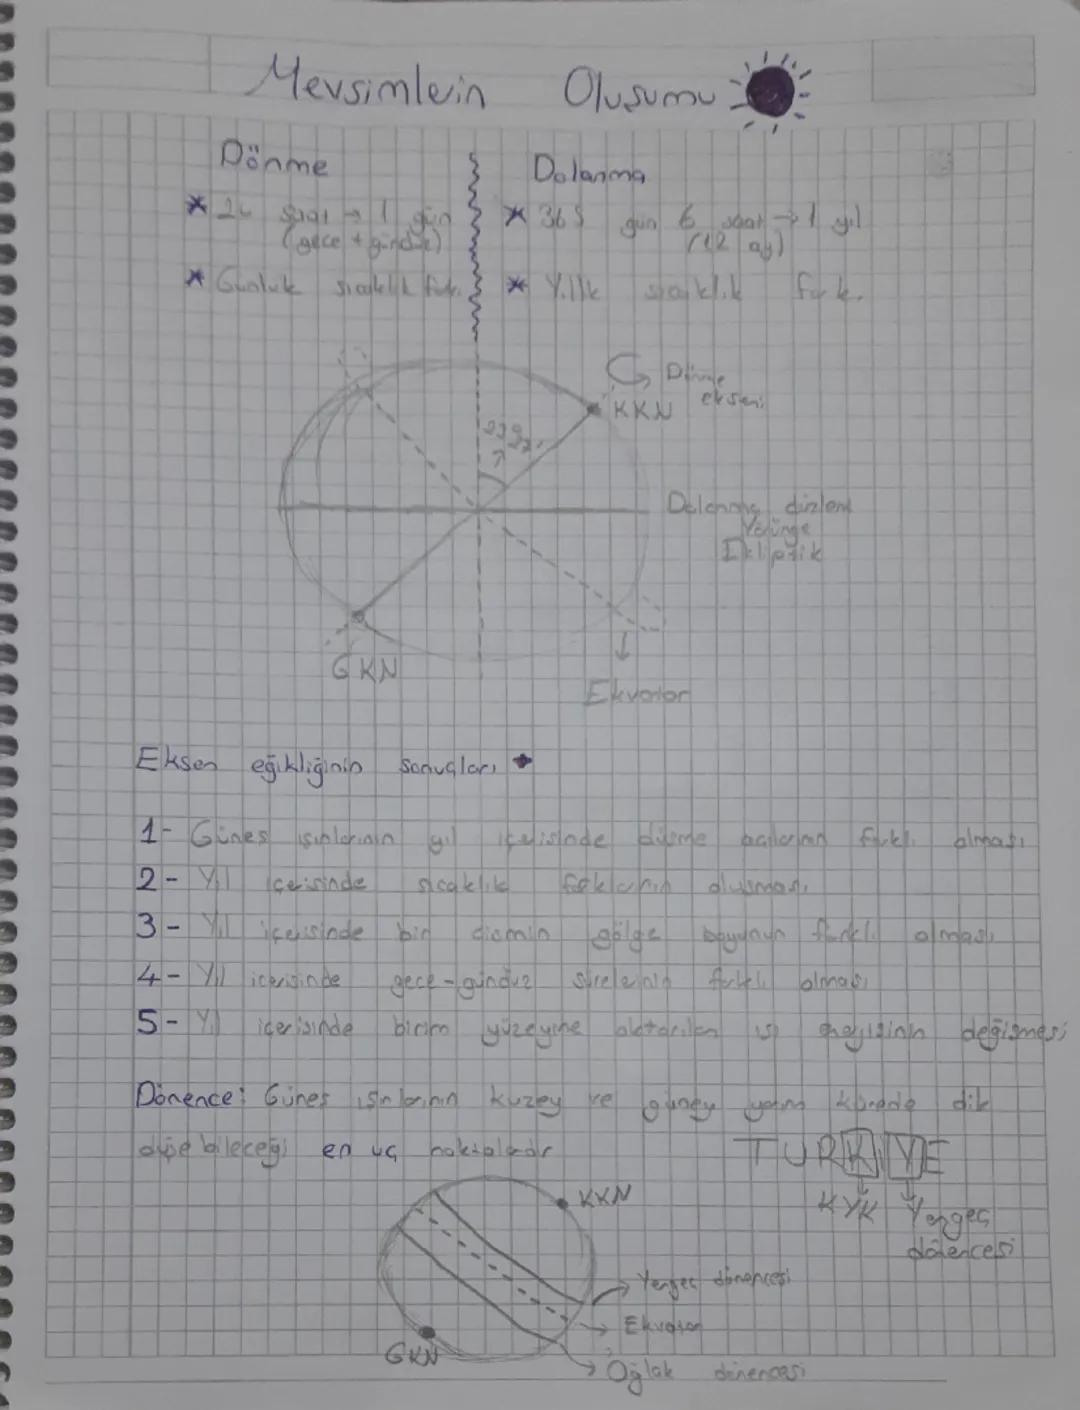 Mevsimlerin Oluşumu
Dönme
Dolanma
* 24 saat → 1 gün
(gece + gündüz)
* 365 gün 6 saat → 1 yıl
(12 ay)
* Günlük sıcaklık fark.
* Yıllık sıcaklık fark.
Dönme
ekseni
KKN
23° 27'
Dolanma düzlemi
Yörünge
Ekliptik
GKN
Ekvator
Eksen eğikliğinin sonuçları
1- Güneş ışınlarının yıl içerisinde düşme açılarının farklı olması
2- Yıl içerisinde sıcaklık farklarının oluşması
3- Yıl içerisinde bir cismin gölge boyunun farklı olması
4- Yıl içerisinde gece-gündüz sürelerinin farklı olması
5- Yıl içerisinde birim yüzeyine aktarılan ısı enerjisinin değişmesi
Dönence: Güneş ışınlarının kuzey ve güney yarım kürede dik
düşe bileceği en uç noktalardır
TURKİYE
KKN
KYK
Yengeç
dönencesi
Yengeç dönencesi
Ekvator
GKN
Oğlak dönencesi